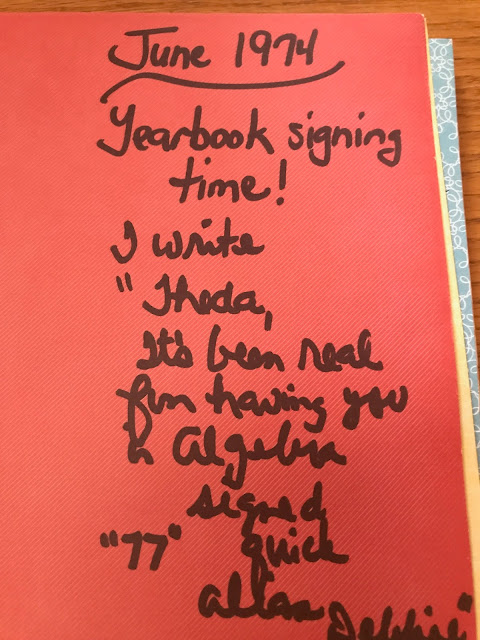 June 1974
Yearbook signing
time!
I write
"Theda,
It's been real
fun having you
in Algebra
signed
"77" quick
alias Debbie"